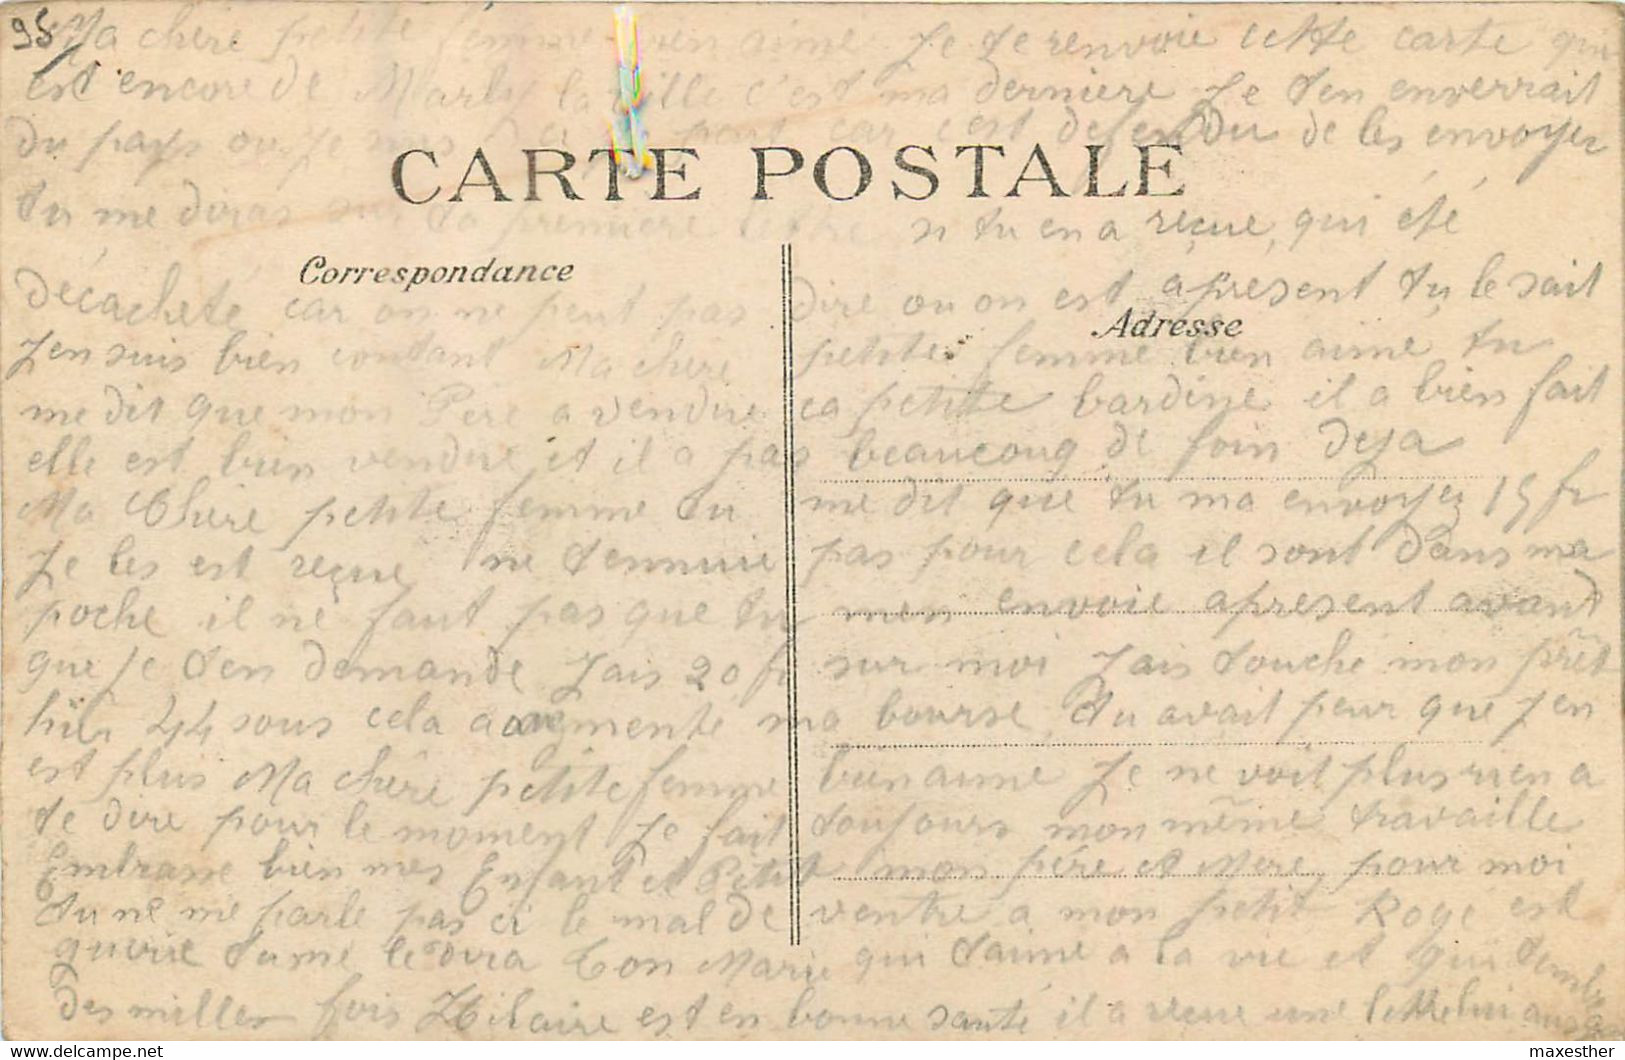 95
Ma chère petite femme bien aimé Je te renvoie cette carte qui
est encore de Marly la ville c'est ma derniere Je t'en enverrait
du pays ou Je suis point car c'est defendu de les envoyer
CARTE POSTALE
tu me diras sur ta premiere lettre si tu en a reçue, qui été
Correspondance
décacheté car on ne peut pas dire ou on est apresent tu le sait
Adresse
J'en suis bien contant Ma chère petite femme bien aimé tu
me dit que mon Père a vendue ca petite bardine il a bien fait
elle est bien vendue et il a pas beaucoup de foin deja
Ma Chère petite femme tu me dit que tu ma envoyez 15 fr
Je les est reçue ne t'ennuie pas pour cela il sont dans ma
poche il ne faut pas que tu men envoie apresent avant
que Je t'en demande Jais 20 fr sur moi Jais touché mon prêt
hier 44 sous cela augmente ma bourse tu avait peur que J'en
est plus Ma chère petite femme bien aimé Je ne voit plus rien a
te dire pour le moment Je fait toujours mon même travaille
Embrasse bien mes Enfant et Petit mon père et Mere pour moi
tu ne me parle pas ci le mal de ventre a mon petit Roge est
guerie tu me le dira Ton Marie qui t'aime a la vie et qui t'embrasse
des milles fois Hilaire est en bonne santé il a reçue une lettre lui aussi
maxesther